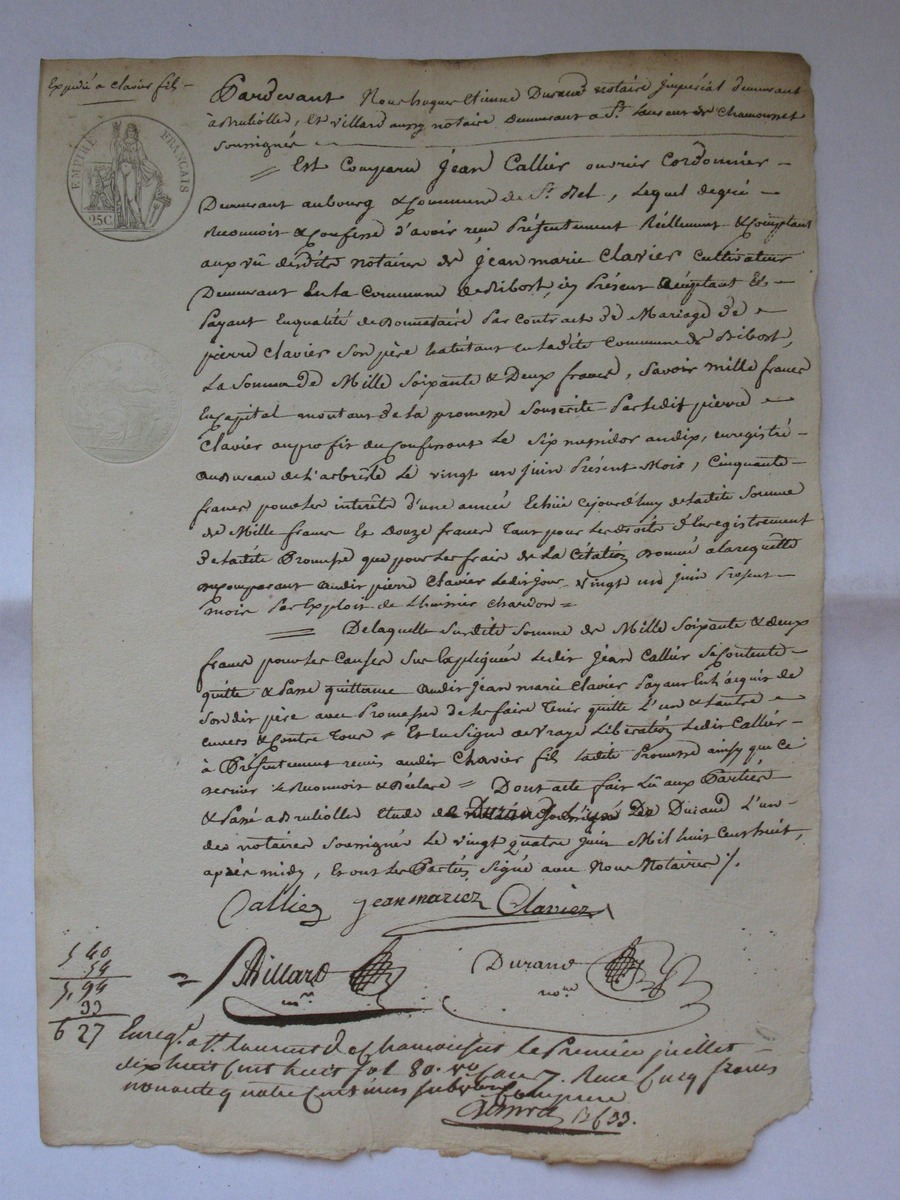 Expédié a Clavier fils
Pardevant Nous Etienne Durand notaire Imperial demeurant
à Brullolles, et Villard aussy notaire demeurant a St. Laurent de Chamousset
soussignés
EMPIRE FRANÇAIS
25C
= Est Comparu Jean Callier ouvrier Cordonnier
Demeurant au bourg & Commune de St. Bel, lequel de gré
Reconnoit & Confesse d'avoir reçu Présentement Réellement & Comptant
aux vû desdits notaires de Jean marie Clavier Cultivateur
Demeurant En la Commune de Bibost, icy Présent acceptant Et
Payant En qualité de Donnataire Par Contract de Mariage de
pierre Clavier Son père habitant en ladite Commune de Bibost,
La Somme de Mille Soixante & Deux francs, Savoir mille francs
En Capital montant de la promesse Souscrite Par ledit pierre
Clavier au profit du Confessant Le Six messidor an dix, enregistré
au Bureau de l'arbrêsle Le vingt un juin Présent Mois, Cinquante
francs pour les interêts d'une année Echüe cejourd'huy de ladite Somme
de Mille francs Et Douze francs Tant pour les droits d'Enregistrement
de ladite Promesse que pour les frais de la Citation donnée a la requette
du comparant audit pierre Clavier ledit jour vingt un juin Présent
mois Par Exploit de L'huissier Chardon =
= De laquelle Susdite Somme de Mille Soixante & deux
francs pour les Causes Sus Expliquées ledit Jean Callier Se Contente
quitte & Passe quittance audit Jean marie Clavier Payant En l'acquit de
Son dit père avec Promesse de les faire Tenir quitte L'un & l'autre
envers & Contre Tous = Et En Signe de Vraye Libération ledit Callier
à Présentement remis audit Clavier fils ladite Promesse ainsy que ce
dernier le Reconnoit & Déclare = Dont acte fait Lû aux Parties
& Passé a Brullolle Etude de Durand L'un
des notaires Soussignés Le vingt quatre juin Mil huit Cent huit,
après midy, Et ont les Parties Signé avec Nous Notaires /.
Callier Jean marie Clavier
= Villard Durand
nre. nore.
5 40
54
5,94
33
6 27
Enregé. a St. laurent de Chamousset le Premier juillet
dix huit cent huit fol 80. vo Case 7. Reçu Cinq francs
nonante quatre Centimes subvention Comprise